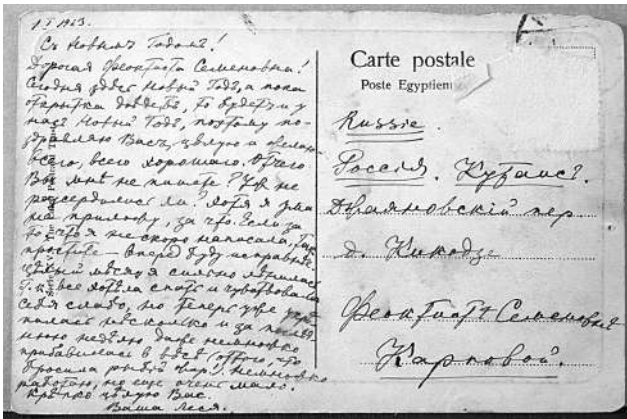 1 I 1913.
Съ Новымъ Годомъ!
Дорогая Феоктиста Семеновна!
Сегодня здѣсь Новый Годъ, а пока
открытка дойдетъ, то будетъ и у
насъ Новый Годъ, поэтому по-
здравляю Васъ, цѣлую и желаю
всего, всего хорошаго. Отчего
Вы мнѣ не пишете? Ужъ не
разсердились ли? Хотя я ума
не приложу, за что. Если за
то, что я не скоро написала,
простите – впередъ буду исправнѣе.
Цѣлый мѣсяцъ я сильно лѣнилась,
т. к. все хотѣла спать и чувствовала
себя слабо, но теперь уже
нѣсколько и за послѣд-
нюю недѣлю даже немножко
прибавилась в вѣсѣ, оттого, что
бросила рыбій жиръ. Немножко
работаю, но еще очень мало.
Крѣпко цѣлую Вас.
Ваша Леся.
Carte postale
Poste Egyptien
Russie.
Россія. Кутаисъ.
пер.
д. Кикодзе
Феоктистѣ Семеновнѣ
Карповой.